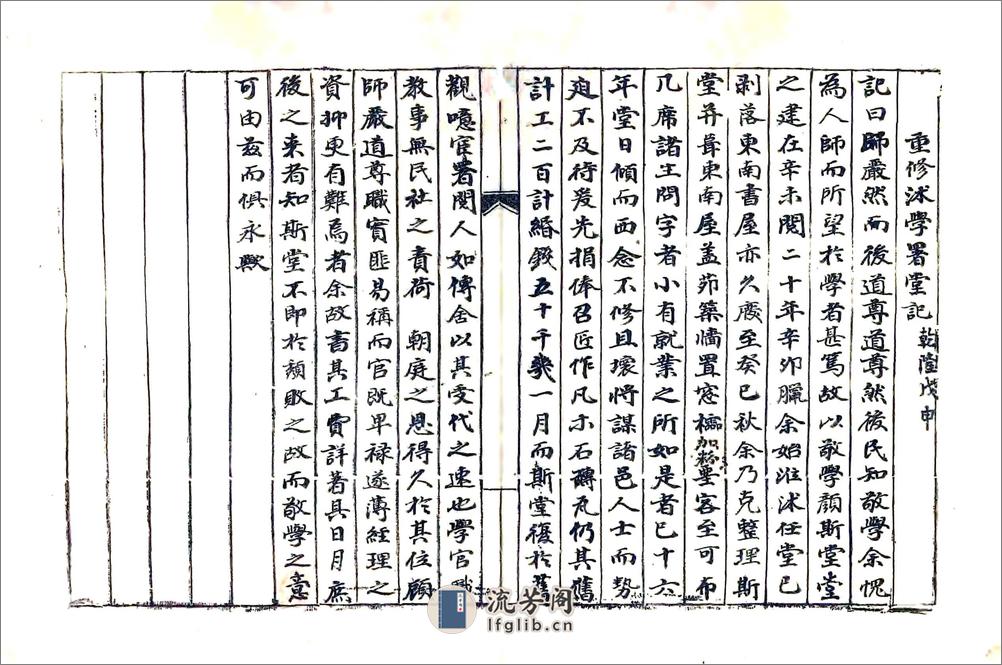 重修沭學署堂記 乾隆戊申
記曰師嚴然而後道尊道尊然後民知敬學余愧
為人師而所望於學者甚篤故以敬學顏斯堂堂
之建在辛未閱二十年辛卯臘余始涖沭任堂已
剥落東南書屋亦久廢至癸巳秋余乃克整理斯
堂并葺東南屋蓋茆築墻置窓櫺加粉堊客至可布
几席諸生問字者小有就業之所如是者已十六
年堂日傾而西念不修且壞將謀諸邑人士而勢
廹不及待爰先捐俸召匠作凡木石磚瓦仍其舊
計工二百計緡錢五十千幾一月而斯堂復於舊
觀噫官署閱人如傳舍以其受代之速也學官職
教事無民社之責荷 朝庭之恩得久於其位顧
師嚴道尊職實匪易稱而官既卑禄遂薄經理之
資抑更有難焉者余故書其工費詳著其日月庶
後之来者知斯堂不即於頹敗之故而敬學之意
可由兹而俱永歟
流芳阁
lfglib.cn